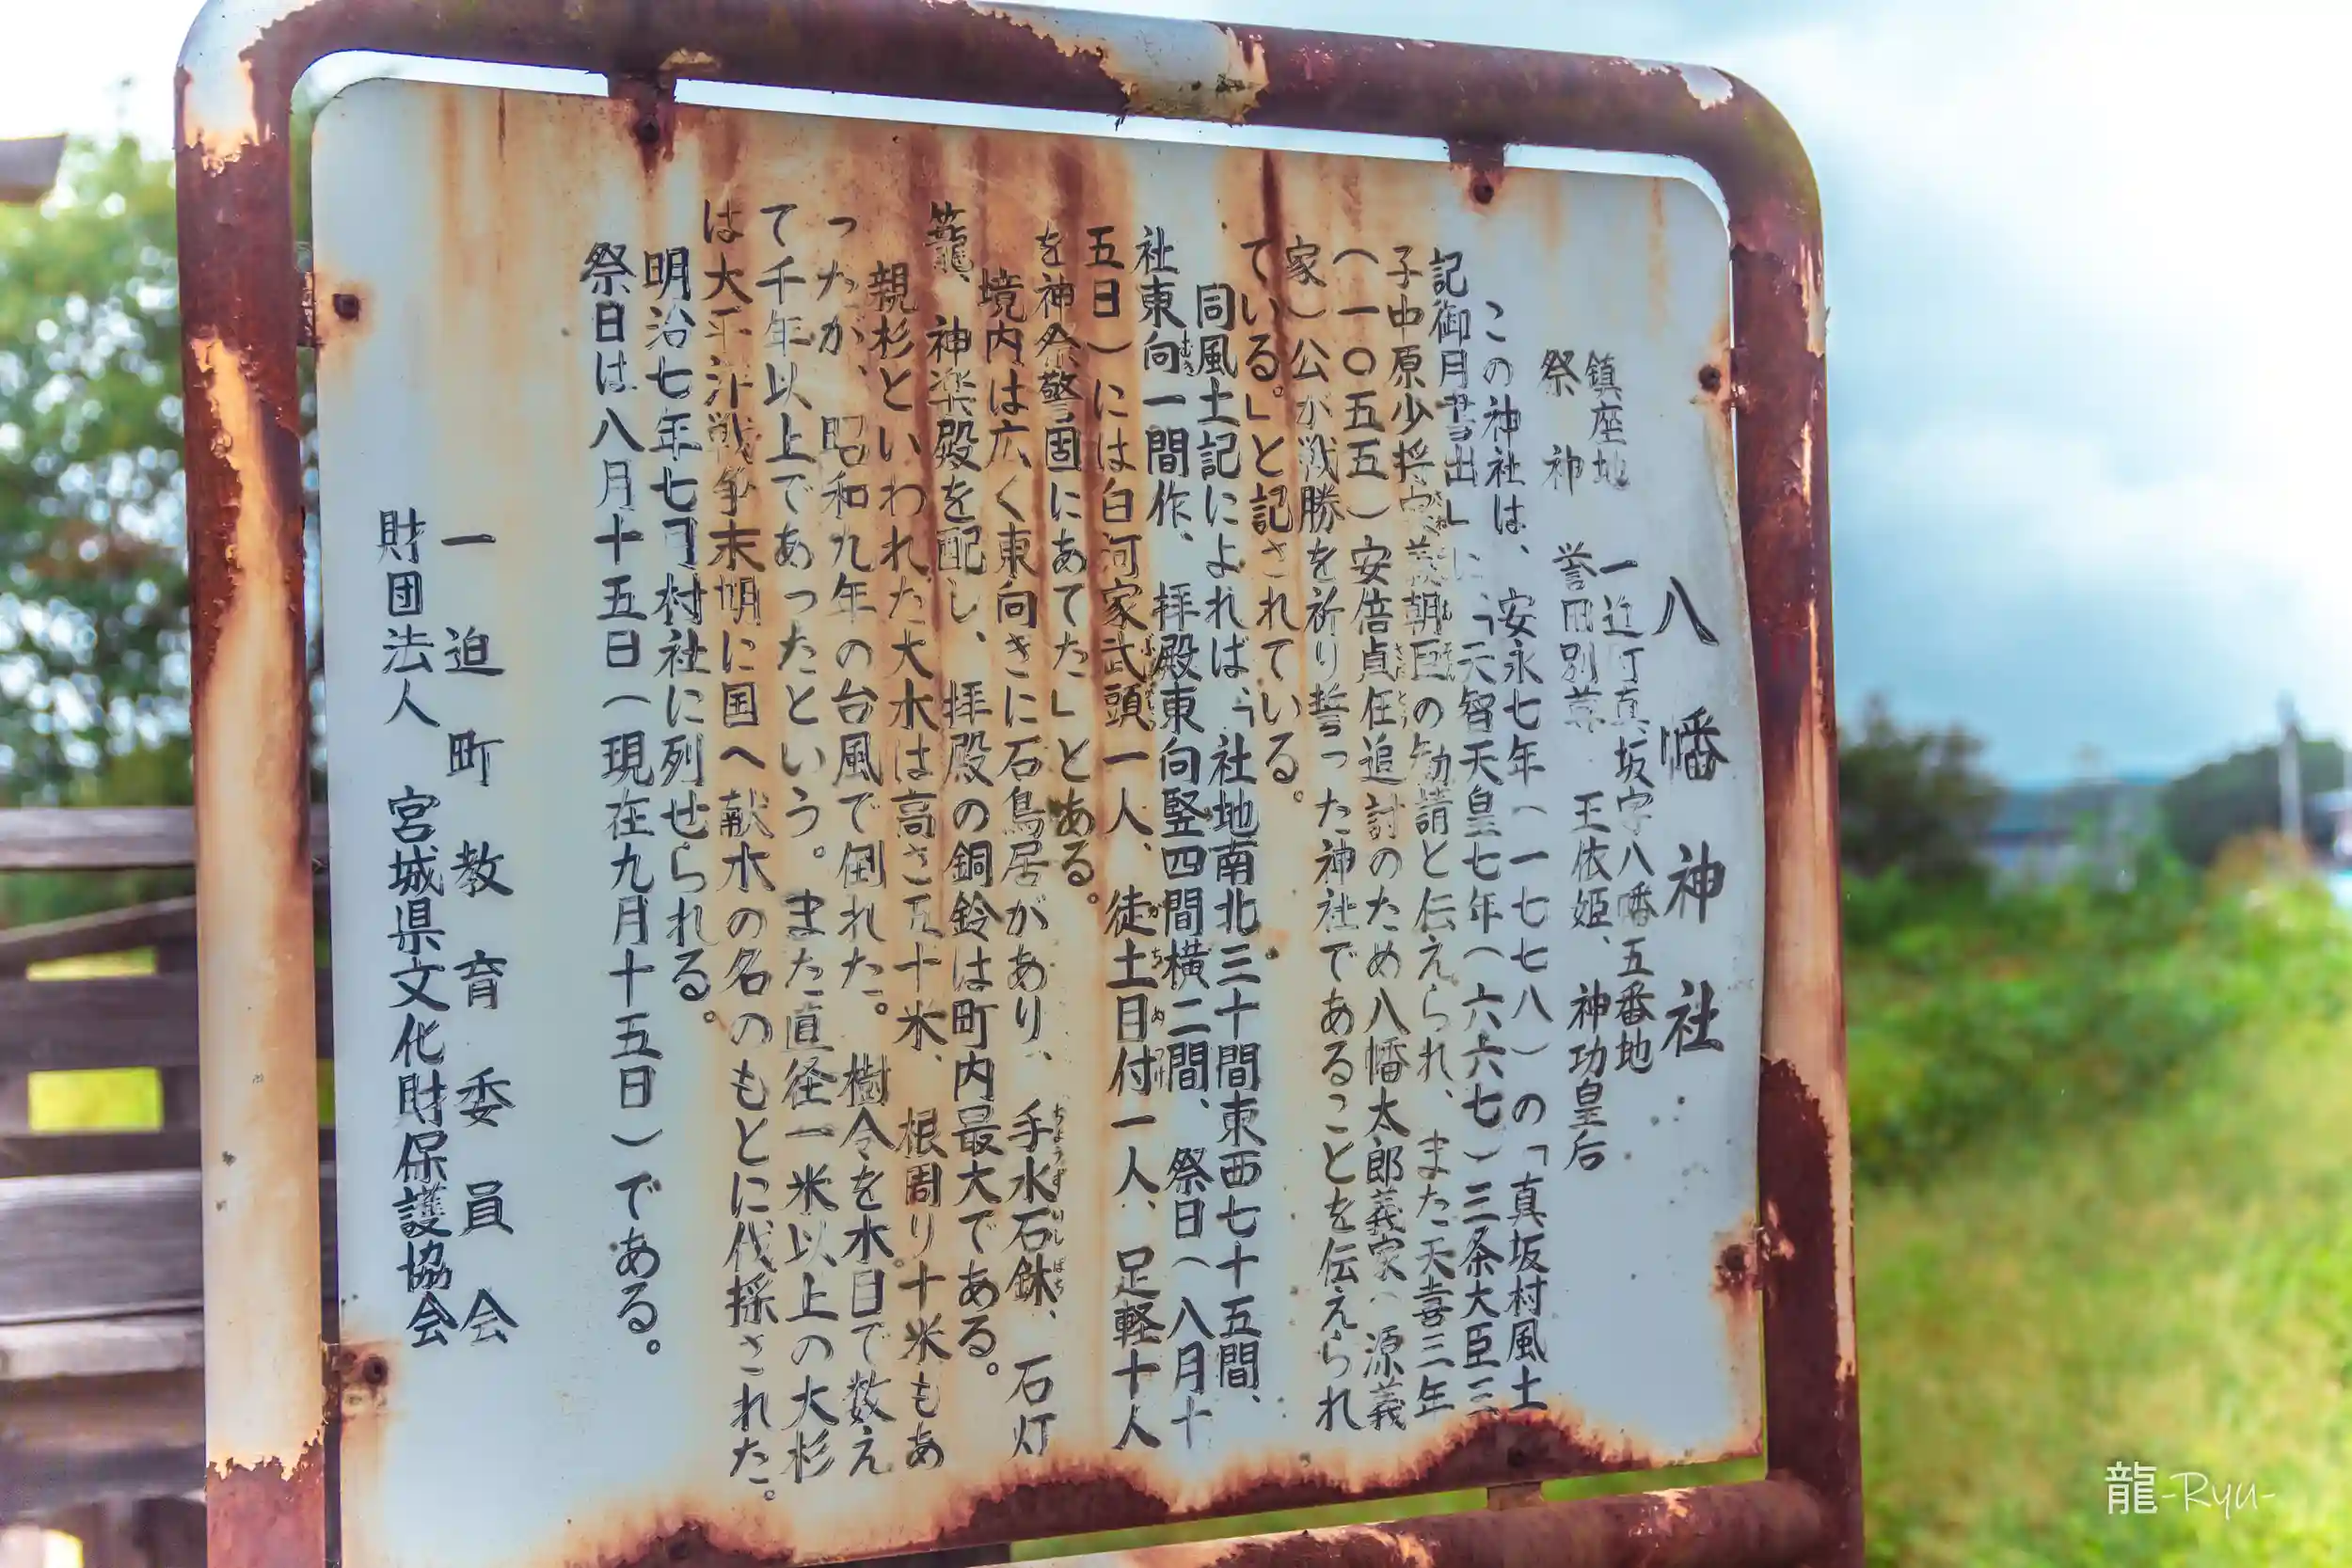 八幡神社
鎮座地 一迫町真坂字八幡五番地
祭神 誉田別尊 玉依姫、神功皇后
この神社は、安永七年(一七七八)の「真坂村風土
記御用書出」に、「天智天皇七年(六六七)三条大臣三
子中原少将実義朝臣の勧請と伝えられ、また天喜三年
(一〇五五)安倍貞任追討のため八幡太郎義家(源義
家)公が戦勝を祈り誓った神社であることを伝えられ
ている。」と記されている。
同風土記によれば、「社地南北三十間東西七十五間、
社東向一間作、拝殿東向竪四間横二間、祭日(八月十
五日)には白河家武頭一人、徒士目付一人、足軽十人
を神祭警固にあてた」とある。
境内は広く東向きに石鳥居があり、手水石鉢、石灯
籠、神楽殿を配し、拝殿の銅鈴は町内最大である。
親杉といわれた大木は高さ五十米、根周り十米もあ
ったが、昭和九年の台風で倒れた。樹令を木目で数え
て千年以上であったという。また直径一米以上の大杉
は大平洋戦争末期に国へ献木の名のもとに伐採された。
明治七年七月村社に列せられる。
祭日は八月十五日(現在九月十五日)である。
一迫町教育委員会
財団法人 宮城県文化財保護協会
龍-Ryu-